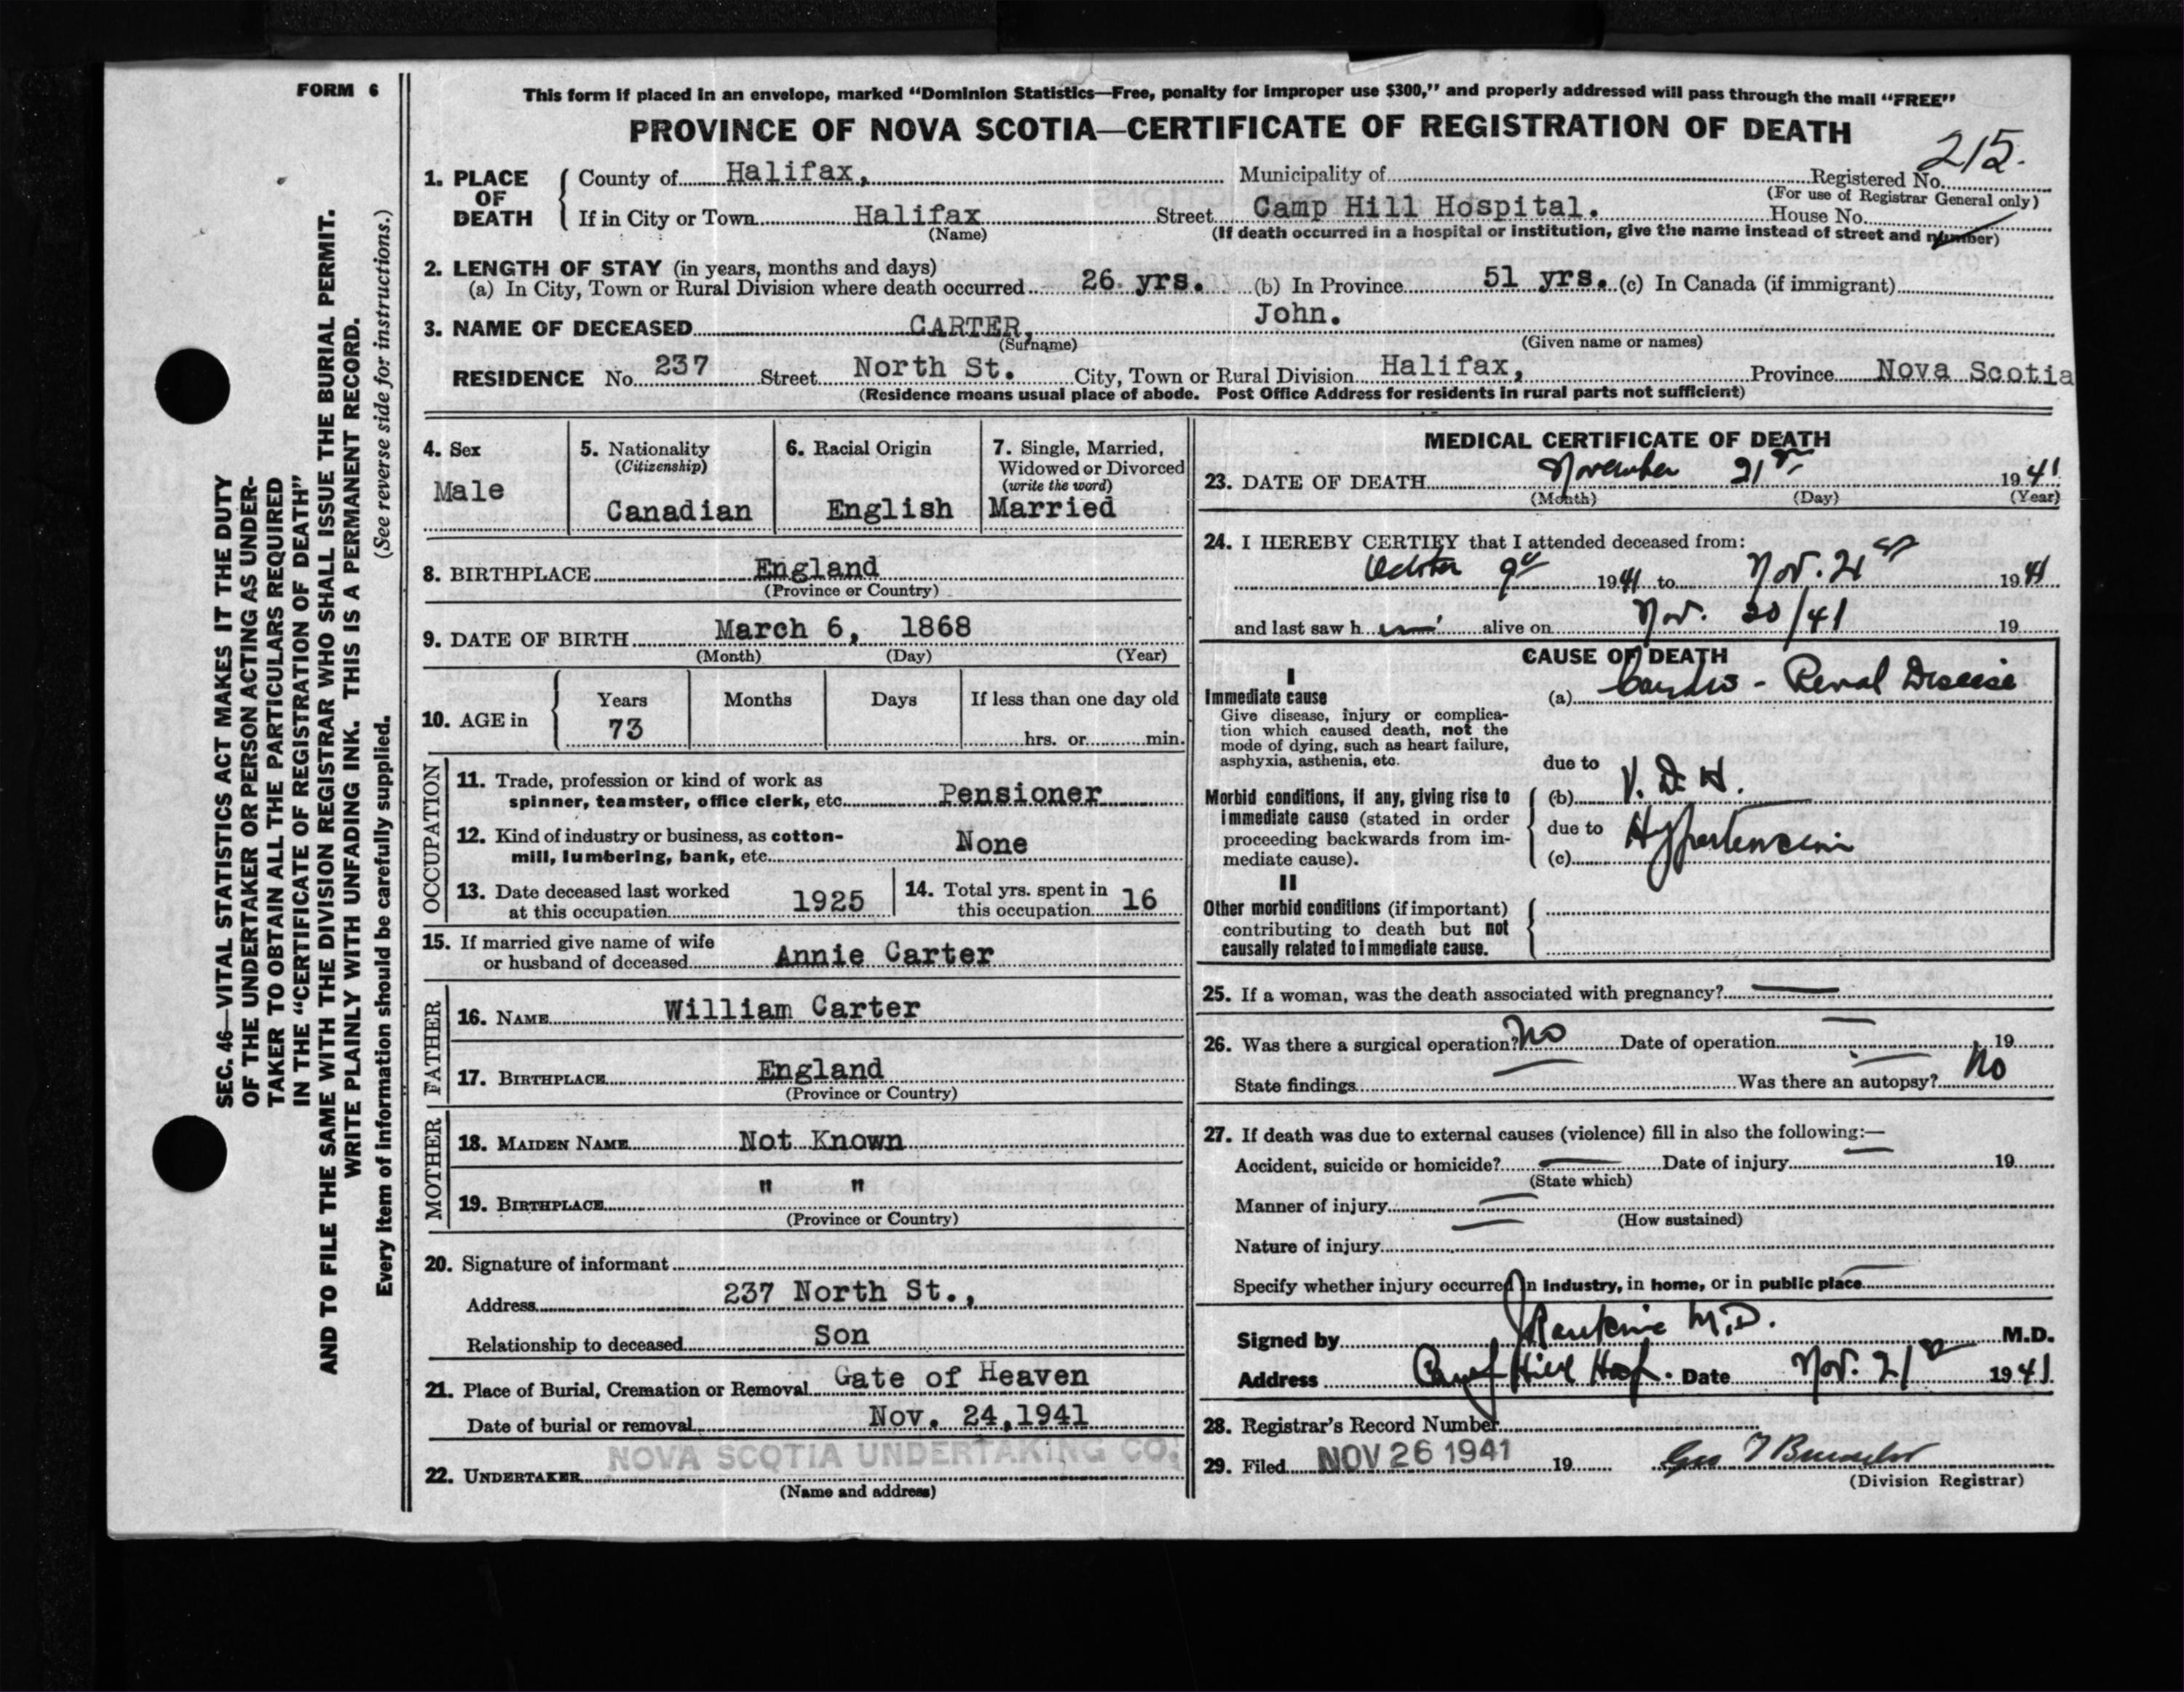 FORM 6
SEC. 46—VITAL STATISTICS ACT MAKES IT THE DUTY
OF THE UNDERTAKER OR PERSON ACTING AS UNDER-
TAKER TO OBTAIN ALL THE PARTICULARS REQUIRED
IN THE "CERTIFICATE OF REGISTRATION OF DEATH"
AND TO FILE THE SAME WITH THE DIVISION REGISTRAR WHO SHALL ISSUE THE BURIAL PERMIT.
WRITE PLAINLY WITH UNFADING INK. THIS IS A PERMANENT RECORD.
Every item of information should be carefully supplied. (See reverse side for instructions.)
This form if placed in an envelope, marked "Dominion Statistics—Free, penalty for improper use $300," and properly addressed will pass through the mail "FREE"
PROVINCE OF NOVA SCOTIA—CERTIFICATE OF REGISTRATION OF DEATH
215.
1. PLACE OF DEATH County of Halifax, Municipality of Registered No.
(For use of Registrar General only)
If in City or Town Halifax Street Camp Hill Hospital. House No.
(Name) (If death occurred in a hospital or institution, give the name instead of street and number)
2. LENGTH OF STAY (in years, months and days)
(a) In City, Town or Rural Division where death occurred 26 yrs. (b) In Province 51 yrs. (c) In Canada (if immigrant)
3. NAME OF DECEASED CARTER, John.
(Surname) (Given name or names)
RESIDENCE No. 237 Street North St. City, Town or Rural Division Halifax, Province Nova Scotia
(Residence means usual place of abode. Post Office Address for residents in rural parts not sufficient)
4. Sex
Male
5. Nationality
(Citizenship)
Canadian
6. Racial Origin
English
7. Single, Married,
Widowed or Divorced
(write the word)
Married
8. BIRTHPLACE England
(Province or Country)
9. DATE OF BIRTH March 6, 1868
(Month) (Day) (Year)
10. AGE in Years Months Days If less than one day old
73 hrs. or min.
OCCUPATION
11. Trade, profession or kind of work as
spinner, teamster, office clerk, etc. Pensioner
12. Kind of industry or business, as cotton-
mill, lumbering, bank, etc. None
13. Date deceased last worked
at this occupation 1925
14. Total yrs. spent in
this occupation 16
15. If married give name of wife
or husband of deceased Annie Carter
FATHER
16. NAME William Carter
17. BIRTHPLACE England
(Province or Country)
MOTHER
18. MAIDEN NAME Not Known
19. BIRTHPLACE " "
(Province or Country)
20. Signature of informant
Address 237 North St.,
Relationship to deceased Son
21. Place of Burial, Cremation or Removal Gate of Heaven
Date of burial or removal Nov. 24,1941
NOVA SCOTIA UNDERTAKING CO.
22. UNDERTAKER
(Name and address)
MEDICAL CERTIFICATE OF DEATH
23. DATE OF DEATH November 21st 1941
(Month) (Day) (Year)
24. I HEREBY CERTIFY that I attended deceased from:
October 9th 1941 to Nov. 21st 1941
and last saw him alive on Nov. 20/41 19
CAUSE OF DEATH
I
Immediate cause
Give disease, injury or complica-
tion which caused death, not the
mode of dying, such as heart failure,
asphyxia, asthenia, etc.
(a) Cardio - Renal Disease
due to
Morbid conditions, if any, giving rise to
immediate cause (stated in order
proceeding backwards from im-
mediate cause).
(b) V. D. H.
due to
(c) Hypertension
II
Other morbid conditions (if important)
contributing to death but not
causally related to immediate cause.
25. If a woman, was the death associated with pregnancy?
26. Was there a surgical operation? No Date of operation 19
State findings Was there an autopsy? No
27. If death was due to external causes (violence) fill in also the following:—
Accident, suicide or homicide? Date of injury 19
(State which)
Manner of injury
(How sustained)
Nature of injury
Specify whether injury occurred in industry, in home, or in public place
Signed by J Rankine M.D. M.D.
Address Camp Hill Hosp. Date Nov. 21st 1941
28. Registrar's Record Number
29. Filed NOV 26 1941 19
(Division Registrar)